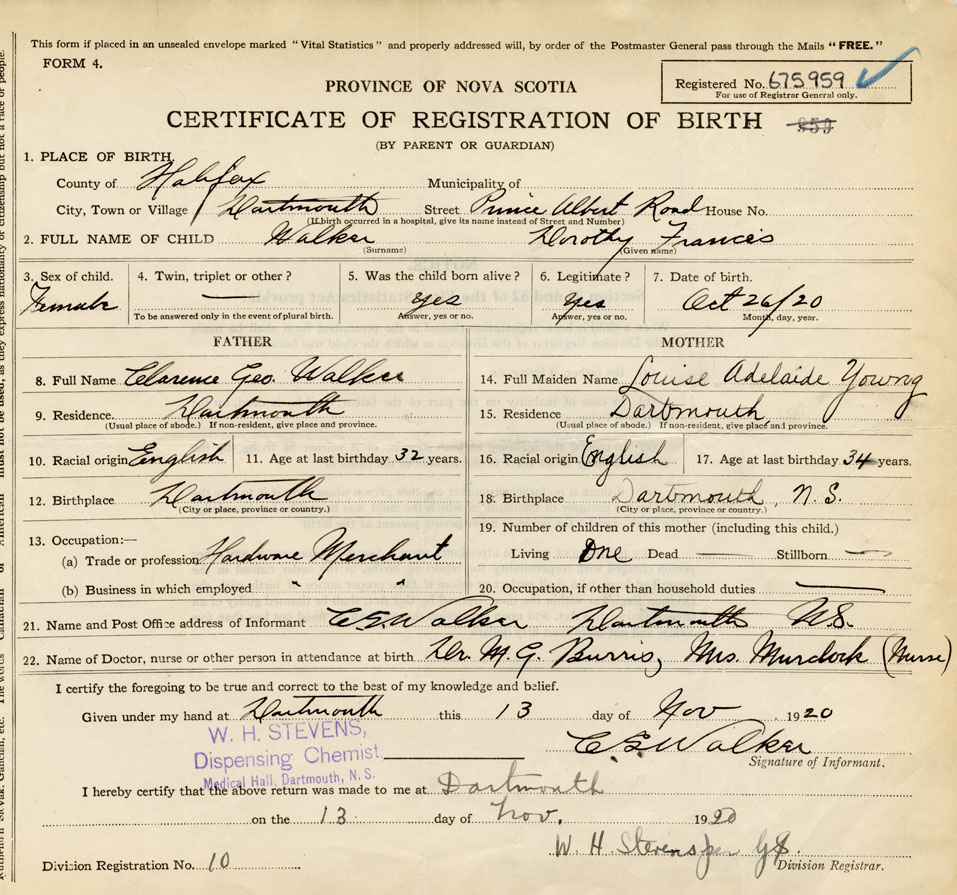 This form if placed in an unsealed envelope marked "Vital Statistics" and properly addressed will, by order of the Postmaster General pass through the Mails "FREE."
FORM 4.
Registered No. 675959
For use of Registrar General only.
PROVINCE OF NOVA SCOTIA
CERTIFICATE OF REGISTRATION OF BIRTH
(BY PARENT OR GUARDIAN)
1. PLACE OF BIRTH
County of Halifax Municipality of
City, Town or Village Dartmouth Street Prince Albert Road House No.
(If birth occurred in a hospital, give its name instead of Street and Number)
2. FULL NAME OF CHILD Walker Dorothy Frances
(Surname) (Given name)
3. Sex of child. 4. Twin, triplet or other? 5. Was the child born alive? 6. Legitimate? 7. Date of birth.
Female — yes yes Oct 26/20
To be answered only in the event of plural birth. Answer, yes or no. Answer, yes or no. Month, day, year.
FATHER MOTHER
8. Full Name Clarence Geo. Walker 14. Full Maiden Name Louise Adelaide Young
9. Residence. Dartmouth 15. Residence Dartmouth
(Usual place of abode.) If non-resident, give place and province. (Usual place of abode.) If non-resident, give place and province.
10. Racial origin English 11. Age at last birthday 32 years. 16. Racial origin English 17. Age at last birthday 34 years.
12. Birthplace Dartmouth 18. Birthplace Dartmouth, N.S.
(City or place, province or country.) (City or place, province or country.)
13. Occupation:— 19. Number of children of this mother (including this child.)
(a) Trade or profession Hardware Merchant Living One Dead — Stillborn —
(b) Business in which employed " " 20. Occupation, if other than household duties —
21. Name and Post Office address of Informant C G Walker Dartmouth N.S.
22. Name of Doctor, nurse or other person in attendance at birth Dr. M. G. Burris, Mrs. Murdock (Nurse)
I certify the foregoing to be true and correct to the best of my knowledge and belief.
Given under my hand at Dartmouth this 13 day of Nov 1920
C G Walker
Signature of Informant.
W. H. STEVENS,
Dispensing Chemist,
Medical Hall, Dartmouth, N. S.
I hereby certify that the above return was made to me at Dartmouth
on the 13 day of Nov. 1920
W. H. Stevens per
Division Registration No. 10 Division Registrar.